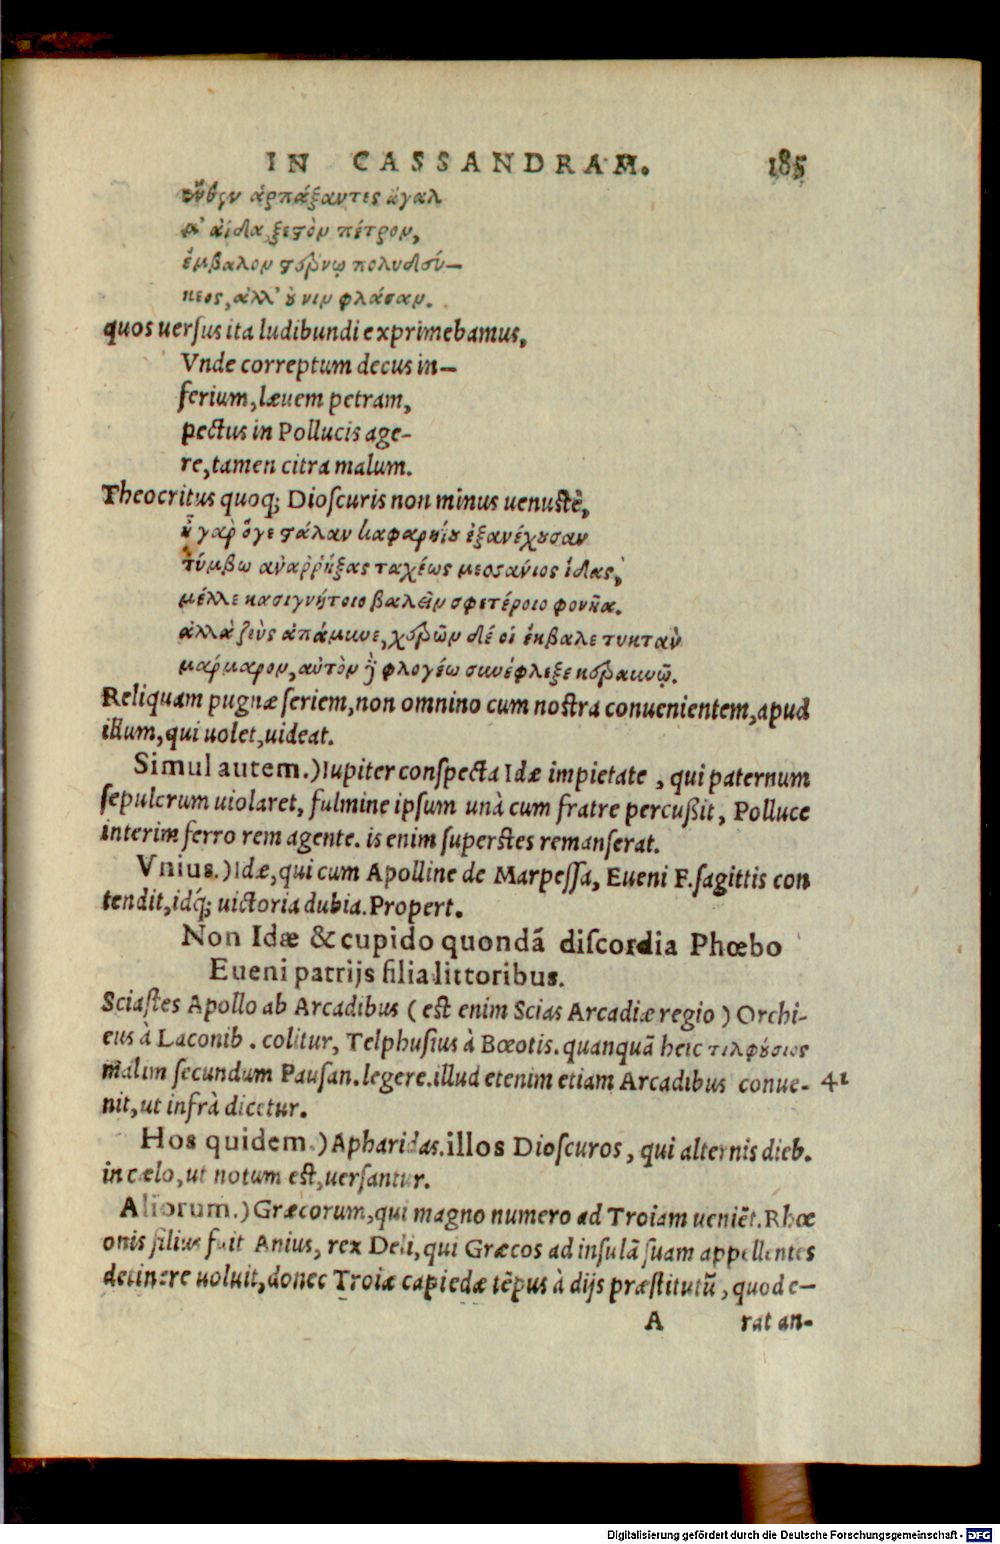 IN CASSANDRAM. 185
ἔνθεν ἁρπάξαντες ἄγαλ
μ' ἀΐδα, ξεστὸν πέτρον,
ἔμβαλον στέρνῳ πολυδεύ-
κεος, ἀλλ' οὔ νιν φλάσαν.
quos uersus ita ludibundi exprimebamus,
Vnde correptum decus in-
ferium, læuem petram,
pectus in Pollucis age-
re, tamen citra malum.
Theocritus quoq; Dioscuris non minus uenustè,
ἦ γαρ ὅγε στάλαν ἀφαρηίου ἐξανέχουσαν
τύμβω ἀναῤῥήξας ταχέως μεσσάνιος ἴδας,
μέλλε κασιγνήτοιο βαλεῖν σφετέροιο φονῆα.
ἀλλὰ ζεὺς ἀπάμυνε, χερῶν δέ οἱ ἔκβαλε τυκτὰν
μάρμαρον, αὐτὸν ἢ φλογέω συνέφλεξε κεραυνῷ.
Reliquam pugnæ seriem, non omnino cum nostra conuenientem, apud
illum, qui uolet, uideat.
Simul autem.) Iupiter conspecta Idæ impietate, qui paternum
sepulcrum uiolaret, fulmine ipsum unà cum fratre percußit, Polluce
interim ferro rem agente. is enim superstes remanserat.
Vnius.) Idæ, qui cum Apolline de Marpessa, Eueni F. sagittis con
tendit, idq́; uictoria dubia. Propert.
Non Idæ & cupido quondã discordia Phœbo
Eueni patrijs filia littoribus.
Sciastes Apollo ab Arcadibus (est enim Scias Arcadiæ regio) Orchi-
eus à Laconib. colitur, Telphusius à Bœotis. quanquã heic τιλφούσιος
malim secundum Pausan. legere. illud etenim etiam Arcadibus conue- 41
nit, ut infrà dicetur.
Hos quidem.) Apharidas. illos Dioscuros, qui alternis dieb.
in cælo, ut notum est, uersantur.
Aliorum.) Græcorum, qui magno numero ad Troiam ueniẽt. Rhœ
onis filius fuit Anius, rex Deli, qui Græcos ad insulã suam appellentes
detinere uoluit, donec Troiæ capiedæ tẽpus à dijs præstitutũ, quod e-
A rat an-
Digitalisierung gefördert durch die Deutsche Forschungsgemeinschaft - DFG